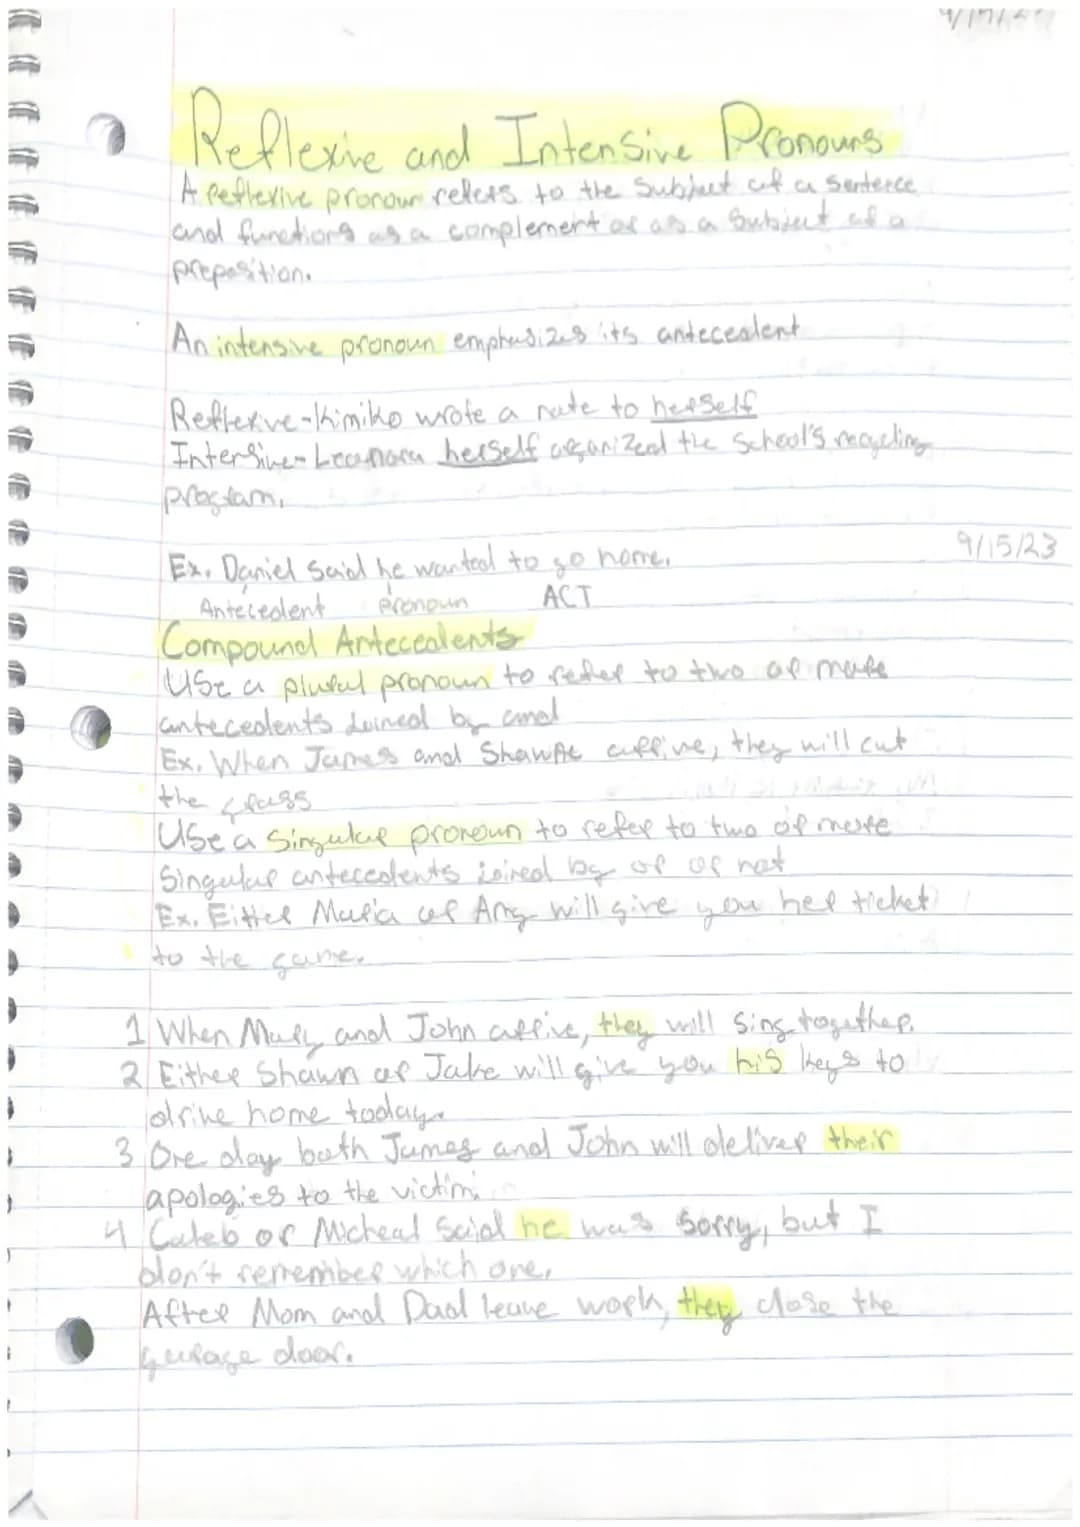 Reflexive and Intensive Pronouns
A reflexive pronoun refers to the Subject of a sentence
and functions as a complement or as a Subject of a
preposition.
An intensive pronoun emphasizes its antecedent
Reflexive-Kimiko wrote a note to herself
Intensive-Leonora herself organized the School's recycling
program.
9/15/23
Ex. Daniel said he wanted to go home.
Antecedent pronoun ACT
Compound Antecedents
Use a plural pronoun to refer to two or more
antecedents Joined by and
Ex. When James and Shawn arrive, they will cut
the grass
Use a Singular pronoun to refer to two or more
Singular antecedents joined by or or not
Ex. Either Maria or Any will give you her ticket
to the game.
1 When Mary and John arrive, they will Sing together.
2 Either Shawn or Jake will give you his keys to
drive home today.
3 One day both James and John will deliver their
apologies to the victim.
4 Caleb or Micheal Said he was sorry, but I
don't remember which one.
After Mom and Dad leave work, they close the
garage door.